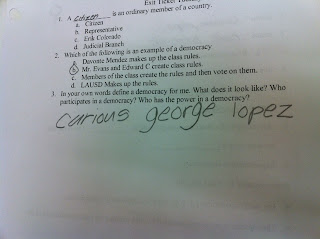 Exit Ticket
1. A Citizen is an ordinary member of a country.
a. Citizen
b. Representative
c. Erik Colorado
d. Judicial Branch
2. Which of the following is an example of a democracy
a. Davonte Mendez makes up the class rules.
b. Mr. Evans and Edward C create class rules.
c. Members of the class create the rules and then vote on them.
d. LAUSD Makes up the rules.
3. In your own words define a democracy for me. What does it look like? Who
participates in a democracy? Who has the power in a democracy?
curious george lopez